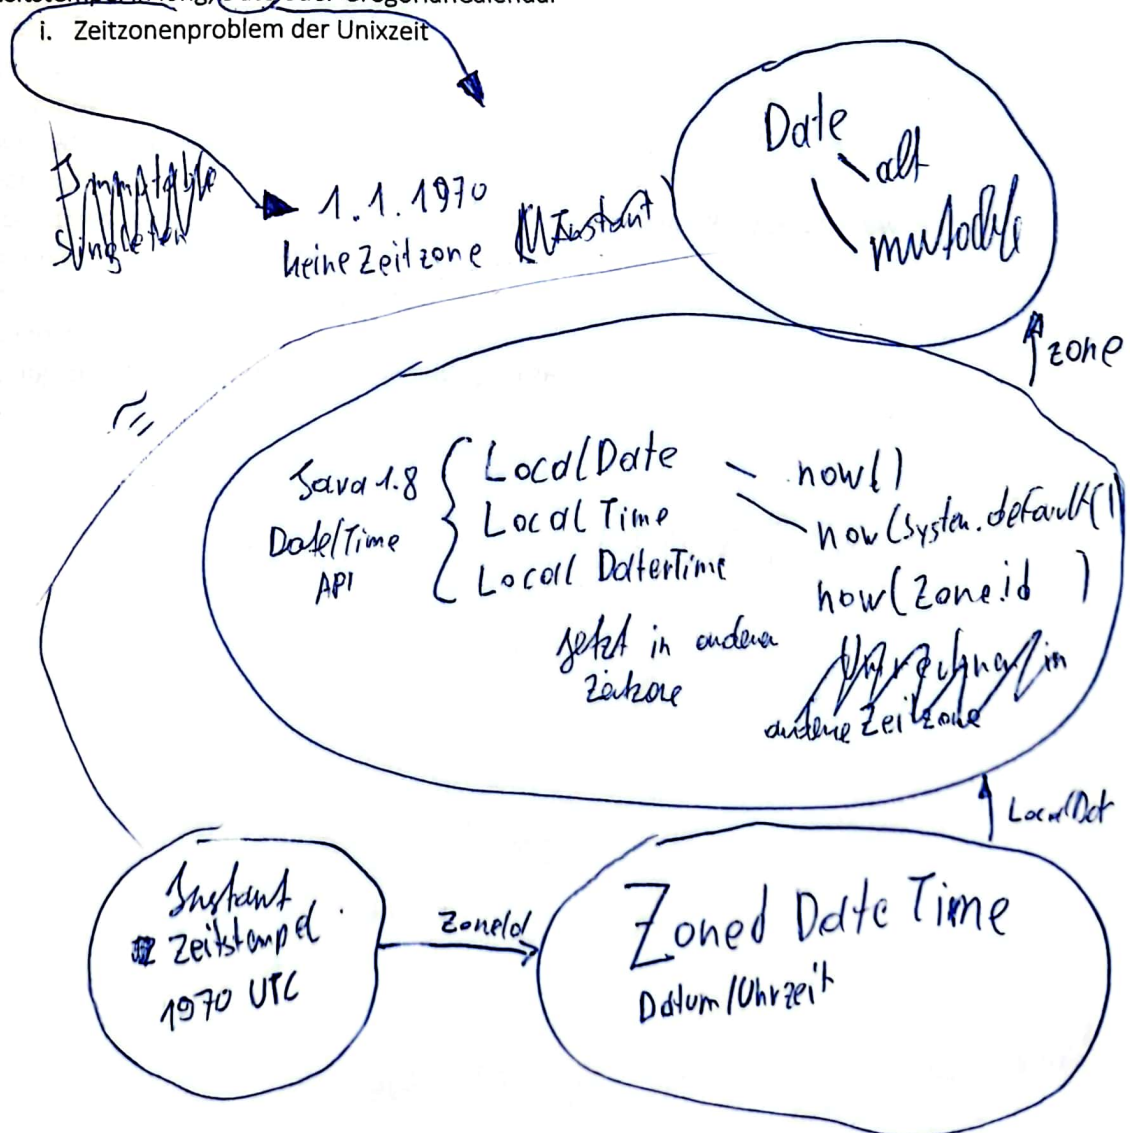 i. Zeitzonenproblem der Unixzeit
Date
alt
mutable
Immutable
Singleton
1.1.1970
keine Zeitzone
Instant
zone
Java 1.8
Date/Time
API
LocalDate
Local Time
Local DaterTime
now()
now(system.default()
now(zone.id )
jetzt in anderer
Zeitzone
Umrechnung in
andere Zeitzone
LocalDat
Instant
Zeitstempel
1970 UTC
ZoneId
Zoned Date Time
Datum/Uhrzeit